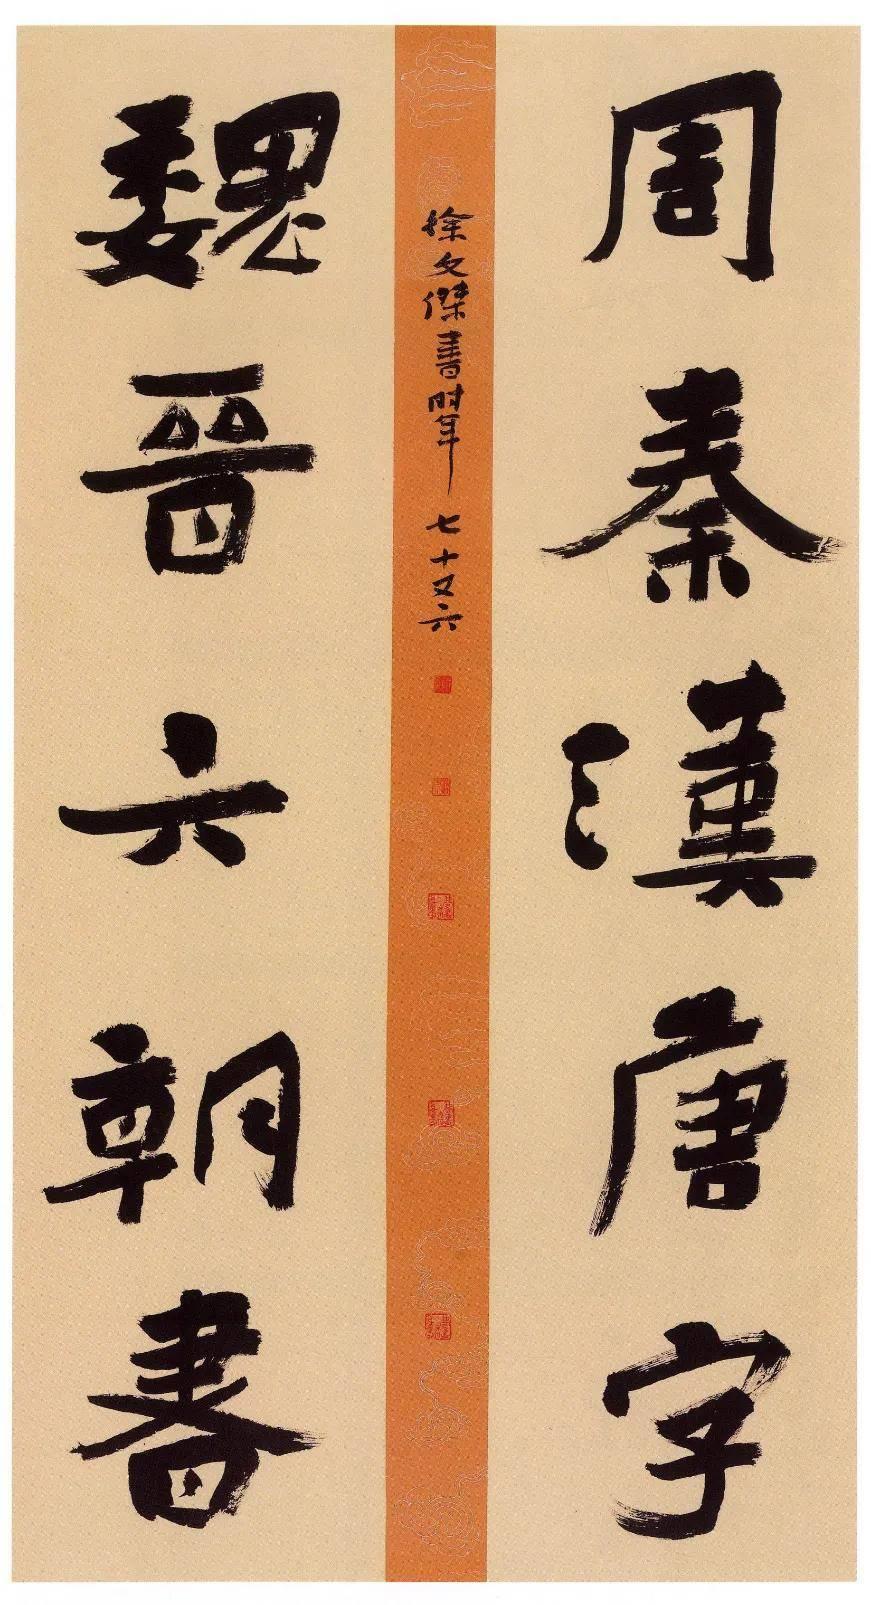 周秦漢唐字
魏晉六朝書
徐文傑書時年七十又六